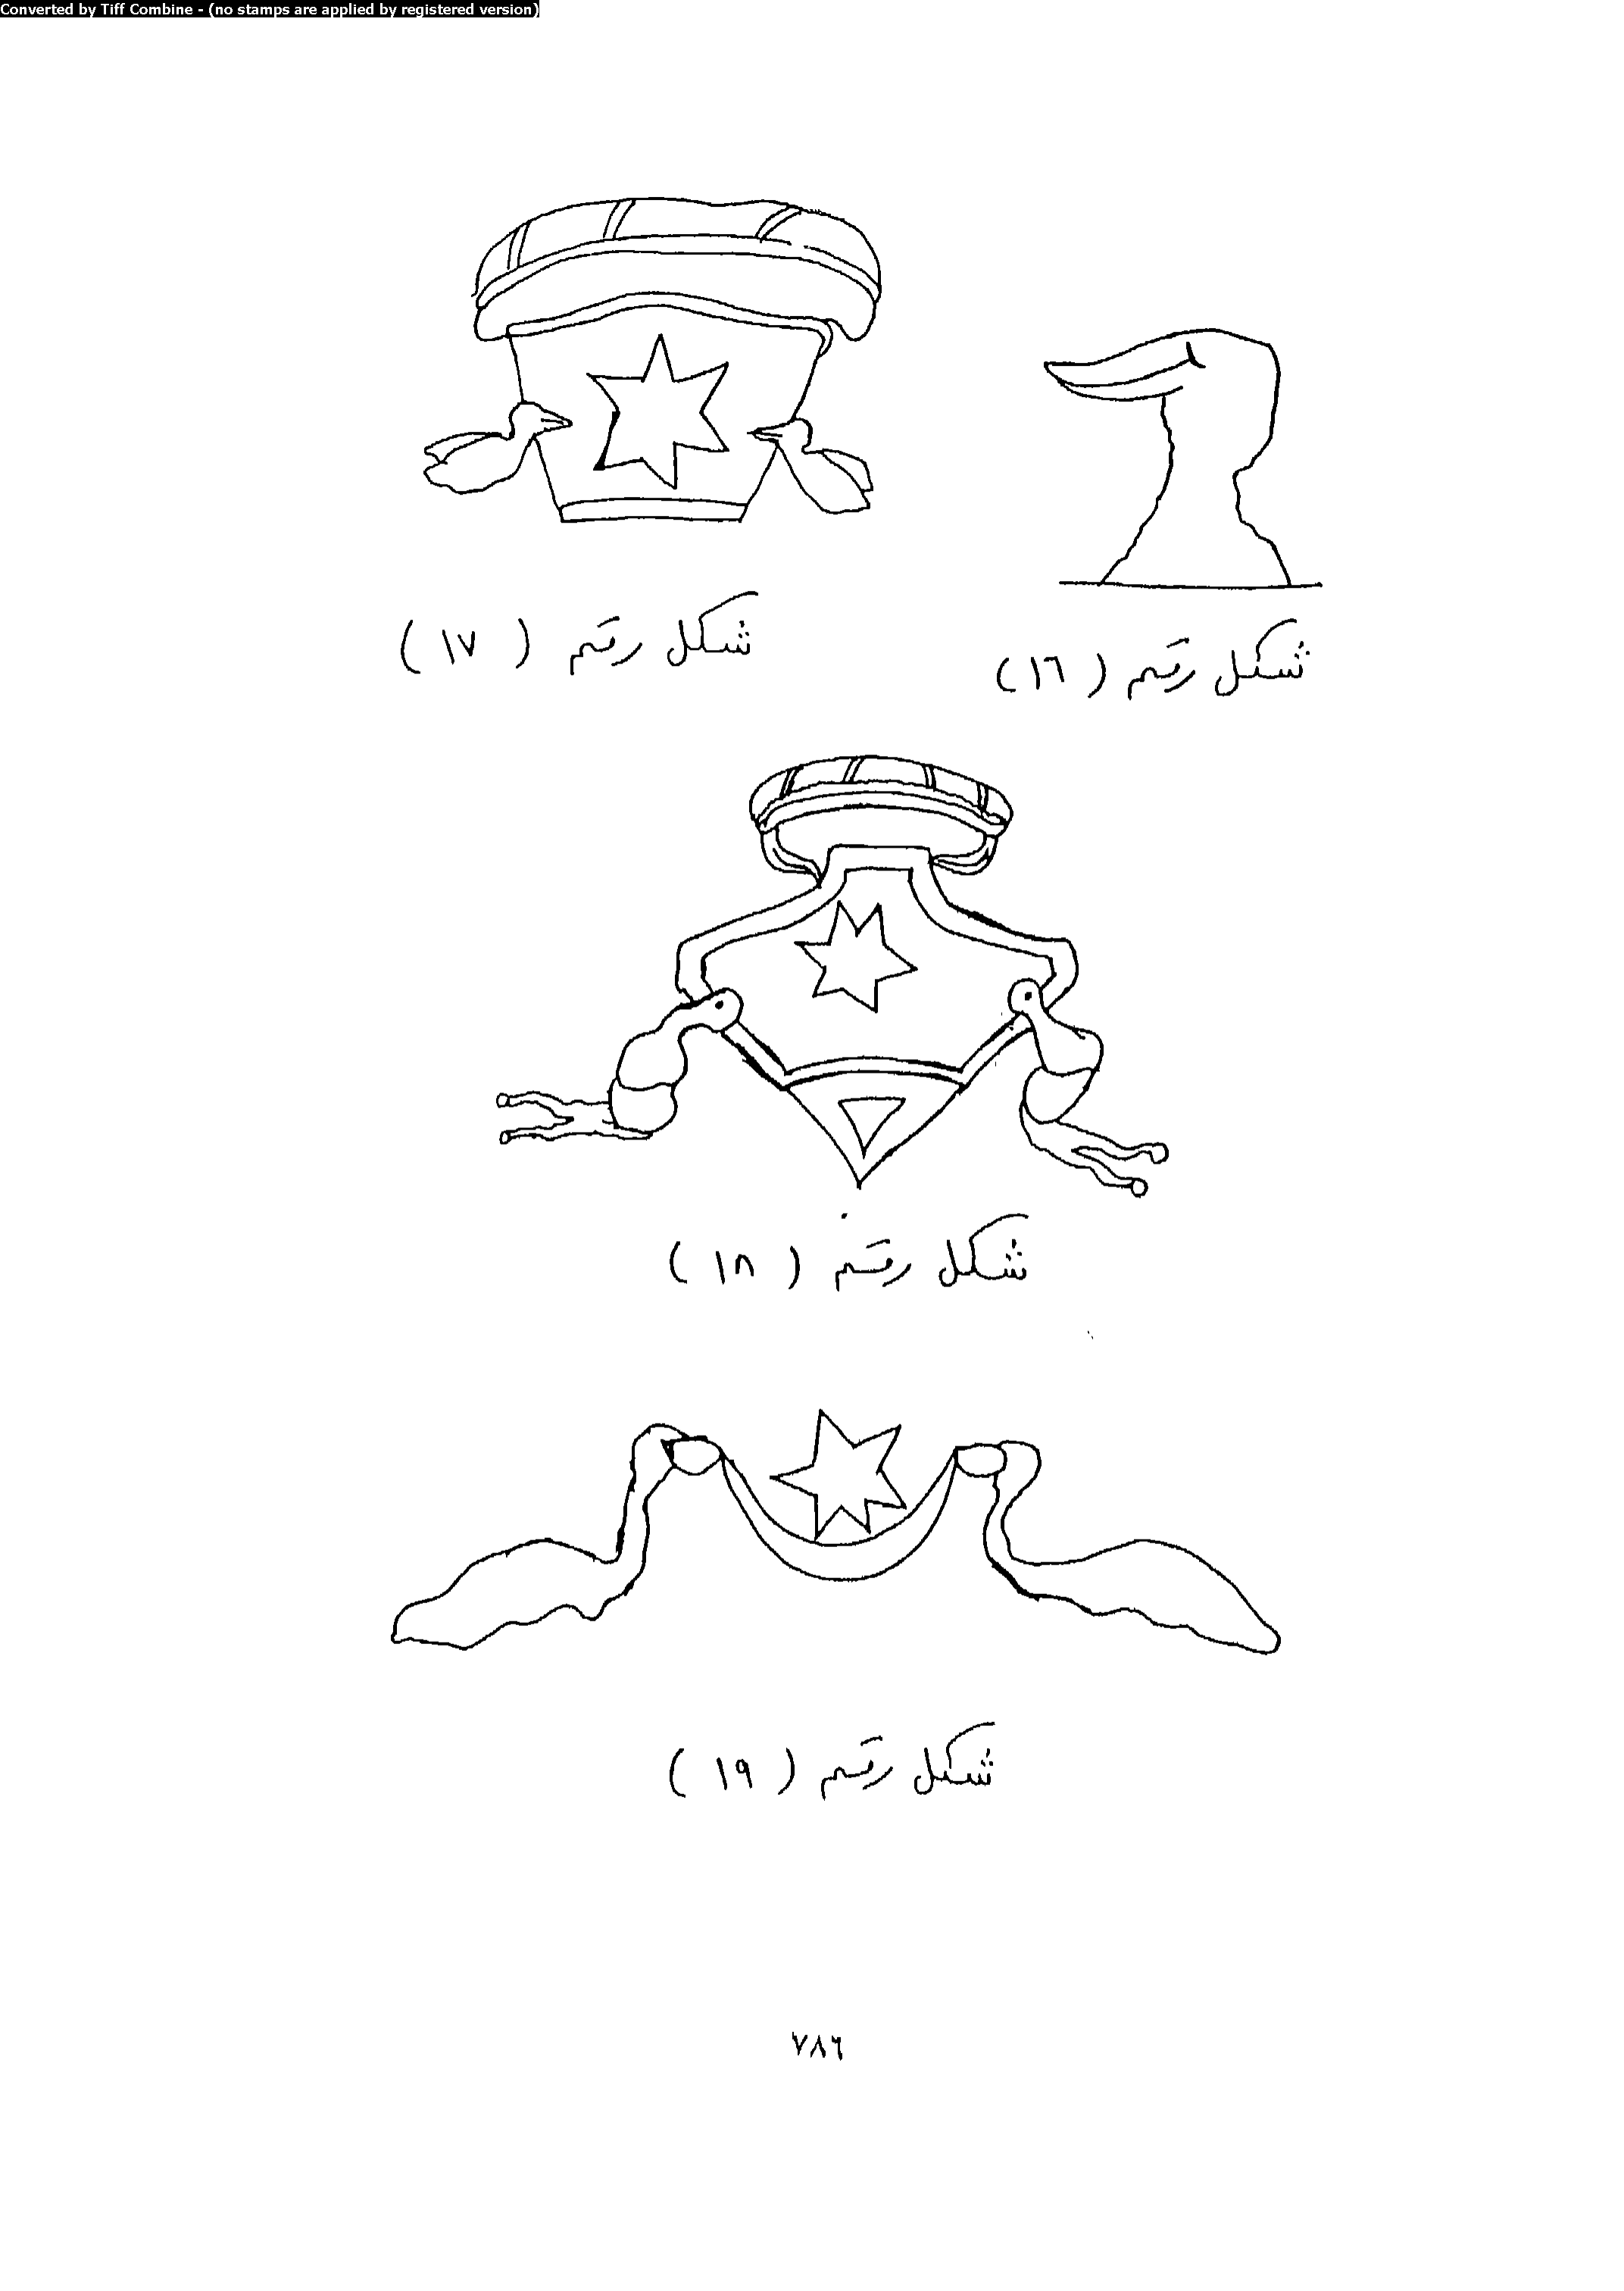 Converted by Tiff Combine - (no stamps are applied by registered version)
شكل رقم ( ١٦ )
شكل رقم ( ١٧ )
شكل رقم ( ١٨ )
شكل رقم ( ١٩ )
٧٨٦